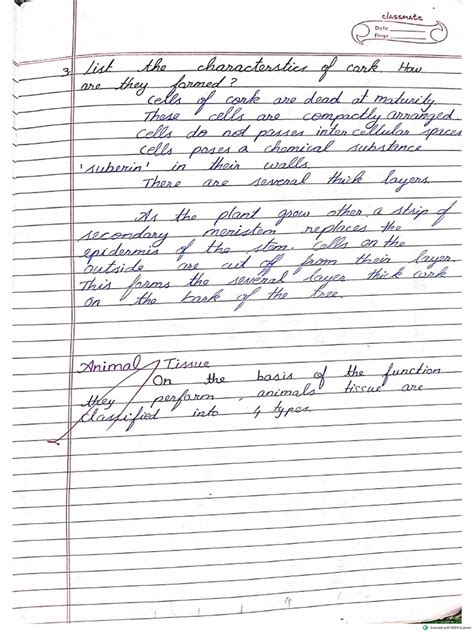 classmate
Date
Page
3. List the characterstics of cork. How
are they formed?
Cells of cork are dead at maturity.
These cells are compactly arranged.
Cells do not passes intercellular spices
Cells poses a chemical substance
'suberin' in their walls.
There are several thick layers.
As the plant grow other a strip of
secondary meristem replaces the
epidermis of the stem. Cells on the
outside are cut of from their layer.
This forms the several layer thick cork
on the bark of the tree.
Animal Tissue
On the basis of the function
they perform, animals tissue are
classified into 4 types.
Scanned with OKEN Scanner